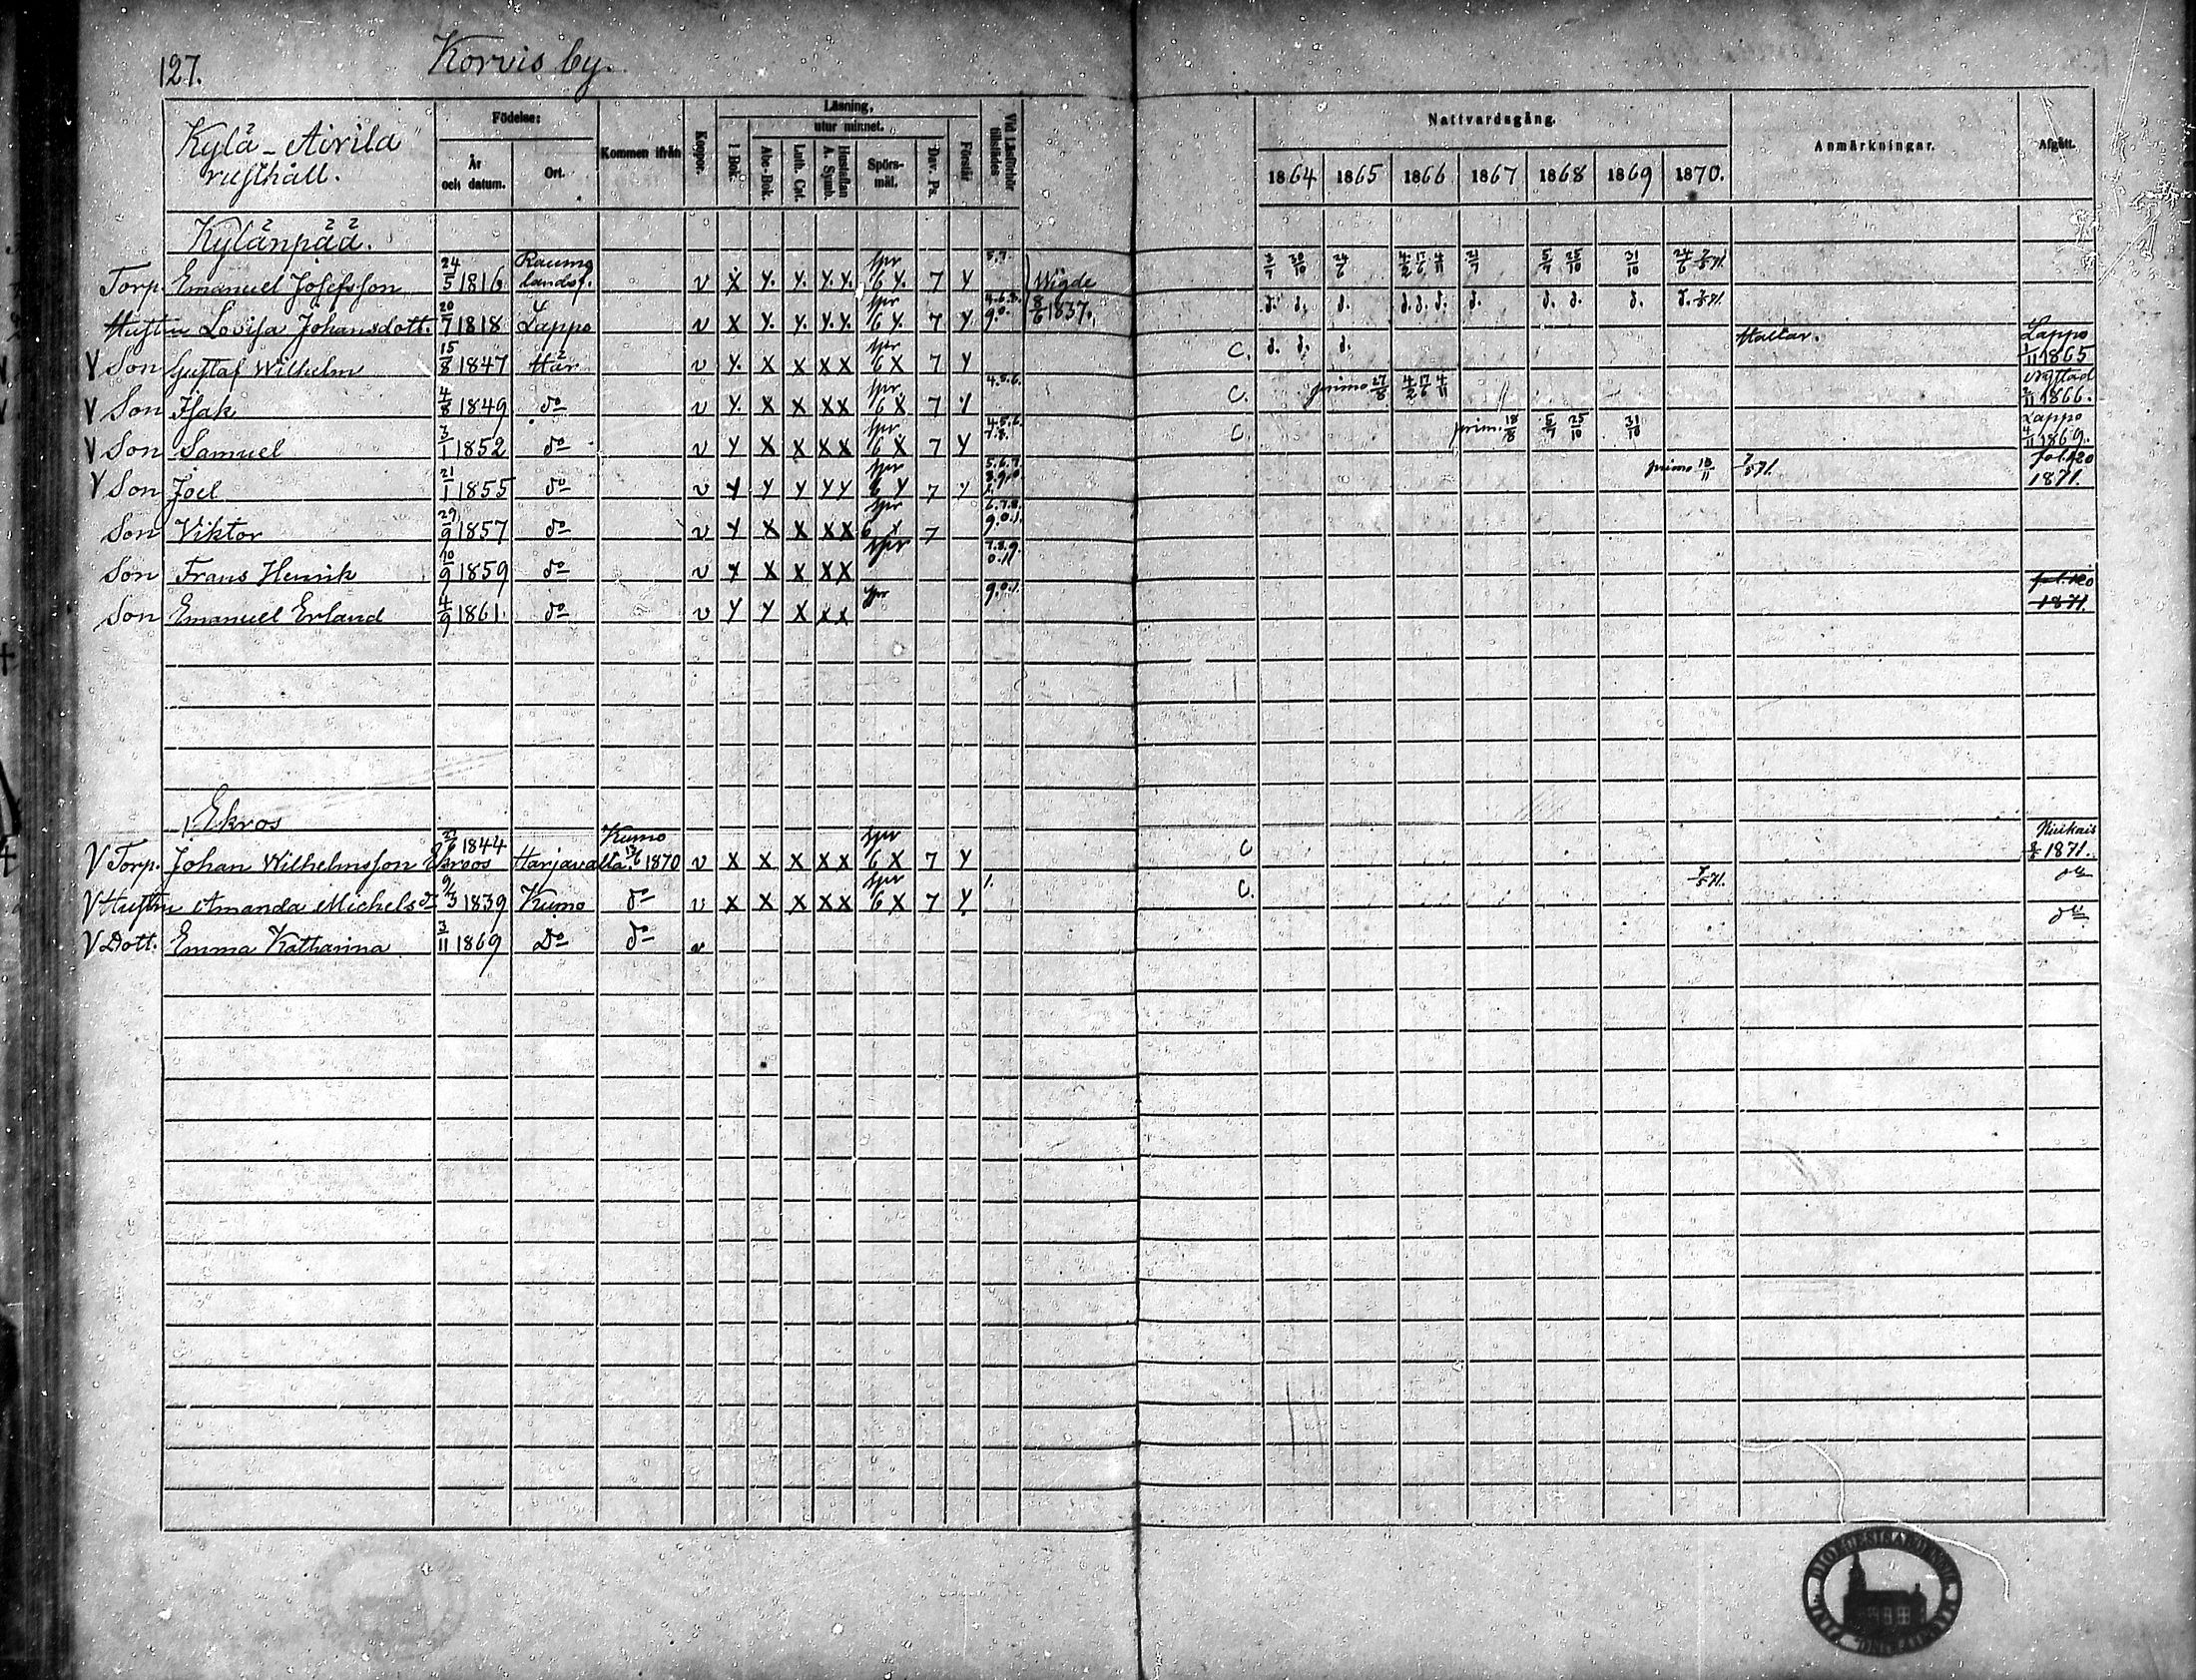 127. Korvis by.
Kylä-Airila rusthåll.
Födelse:
År och datum.
Ort.
Kommen ifrån
Koppor.
Läsning,
utur minnet.
I Bok.
Abc-Bok.
Luth. Cat.
Hustaflan A. Symb.
Spörsmål.
Dav. Ps.
Förstår
Vid Läsförhör tillstädes
Nattvardsgång.
1864 1865 1866 1867 1868 1869 1870.
Anmärkningar.
Afgått.
Kylänpää.
Torp. Emanuel Josefsson 24/5 1816 Raumo landsf. v X Y. Y. Y. Y. spr 6 Y. 7 Y 5.7. Wigde 8/6 1837.
Hustru Lovisa Johansdott. 20/7 1818 Lappo v X Y. Y. Y. Y. spr 6 Y. 7 Y d. d. d. d. d. d. d. d. d. d.
V Son Gustaf Wilhelm 15/8 1847 Här v Y. X X X X spr 6 X 7 Y C. d. d. d. Lappo 1/11 1865
V Son Isak 4/8 1849 do v Y. X X X X spr 6 X 7 Y 4.5.6. C. primo 27/8 Nystad 2/11 1866.
V Son Samuel 3/1 1852 do v Y X X X X spr 6 X 7 Y 4.5.6. 7.8. C. prim. 18/8 5/7 25/10 31/10 Lappo 4/11 1869.
V Son Joel 21/1 1855 do v Y Y Y Y Y spr 6 Y 7 Y 5.6.7. 8.9.0. 1. primo 13/11 7/5 71. fol. 120 1871.
Son Viktor 29/9 1857 do v Y X X X X spr 6 X 7 6.7.8. 9.0.1.
Son Frans Henrik 10/9 1859 do v Y X X X X spr 7.8.9. 0.1
Son Emanuel Erland 4/9 1861. do v Y Y X X X spr 9.0.1. fol. 120 1871.
Ekros
V Torp. Johan Wilhelmsson Ekroos 1844 Harjavalta Kumo 13/6 1870 v X X X X X spr 6 X 7 Y C 1871.
V Hustru Amanda Michelsd 9/3 1839 Kumo do v X X X X X spr 6 X 7 Y. 1. C. 7/5 71. do
V Dott. Emma Katharina 3/11 1869 Do do v do